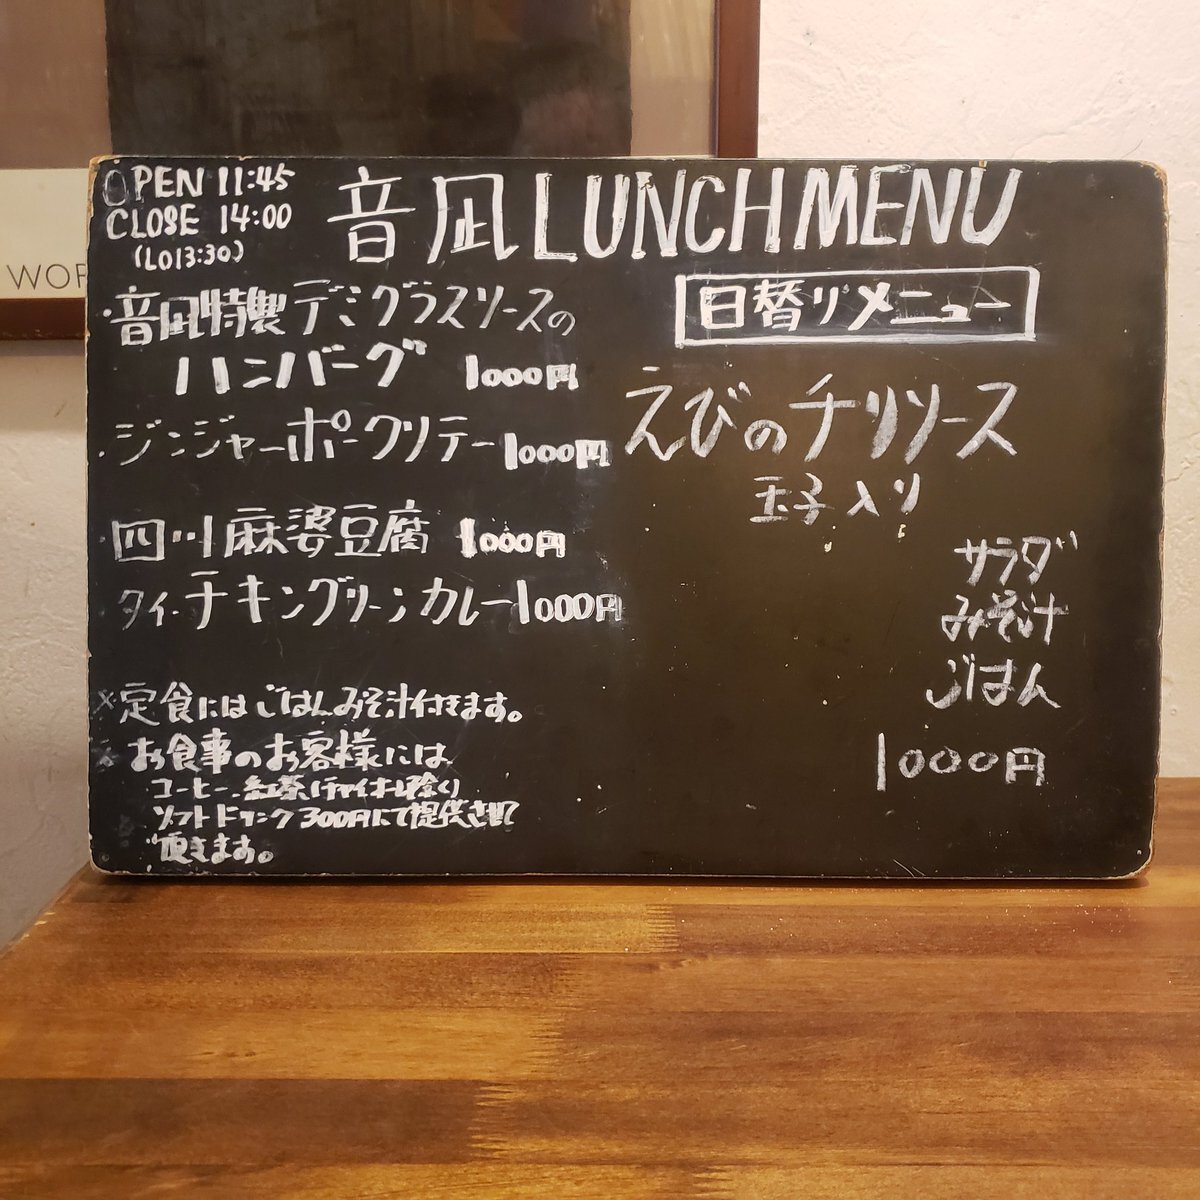 OPEN 11:45
CLOSE 14:00
(LO13:30)
音凪 LUNCH MENU
・音凪特製デミグラスソースの
ハンバーグ 1000円
・ジンジャーポークソテー 1000円
・四川麻婆豆腐 1000円
タイ・チキングリーンカレー 1000円
※定食にはごはんみそ汁付きます。
※お食事のお客様には
コーヒー、紅茶(チャイオーレ除く)
ソフトドリンク300円にて提供させて
頂きます。
日替りメニュー
えびのチリソース
玉子入り
サラダ
みそ汁
ごはん
1000円
WOR